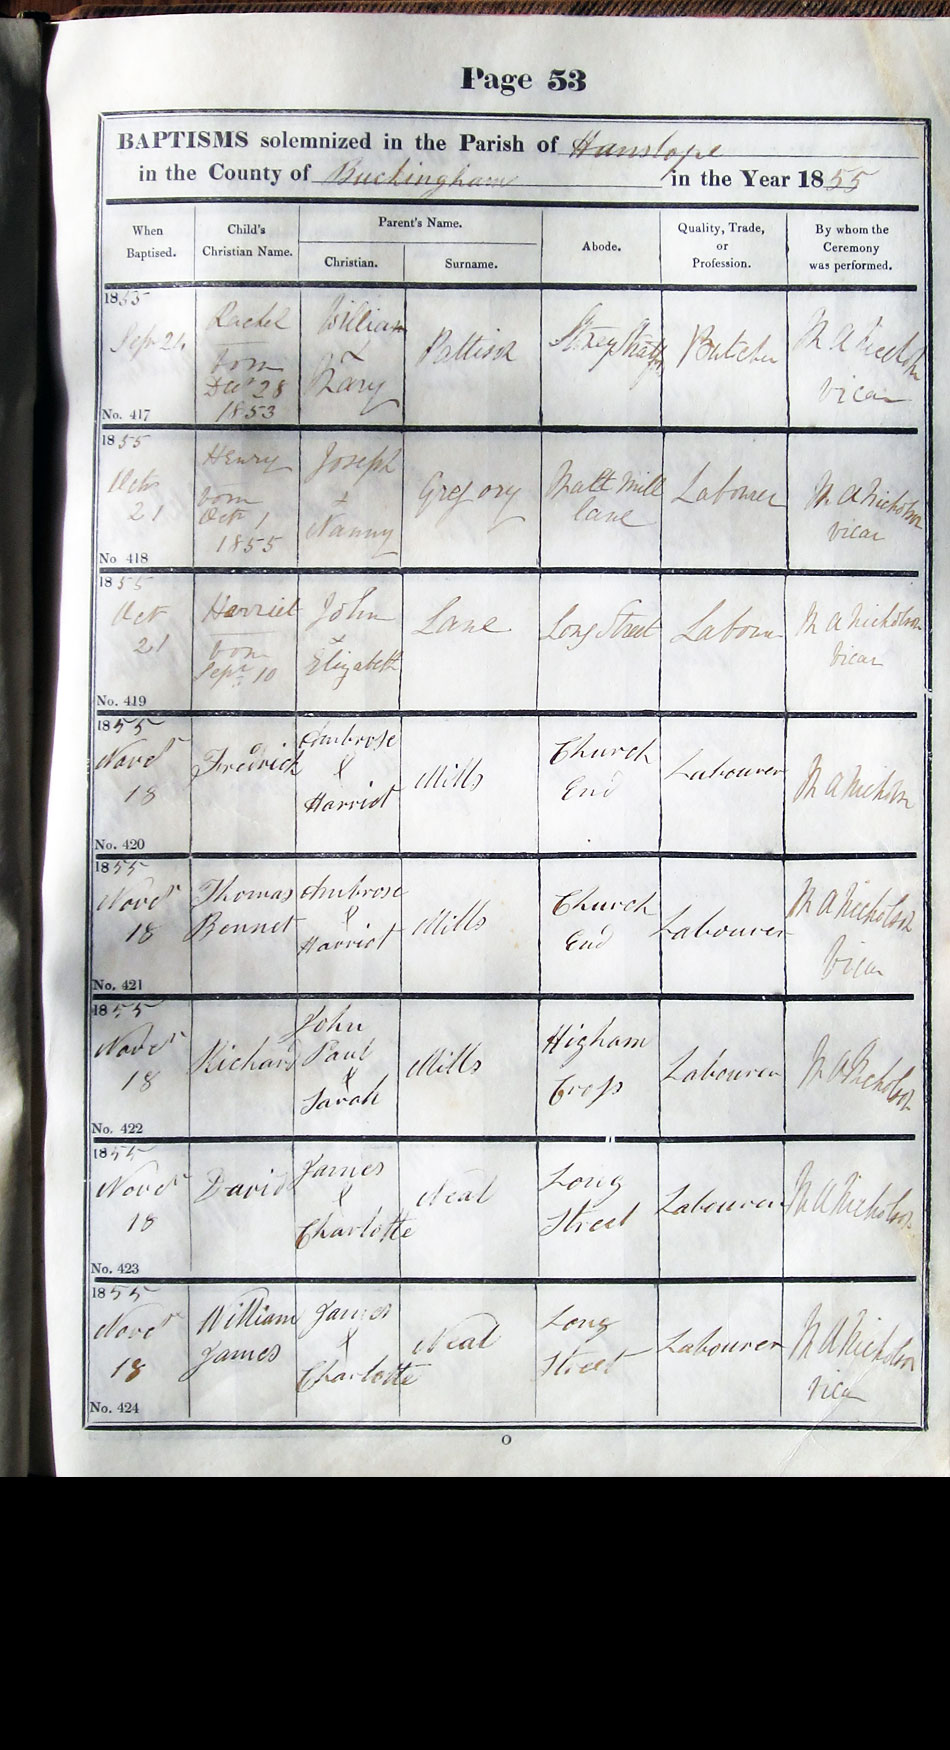 Page 53
BAPTISMS solemnized in the Parish of Hanslope
in the County of Buckingham in the Year 1855
When Baptised.
Child's Christian Name.
Parent's Name.
Christian.
Surname.
Abode.
Quality, Trade, or Profession.
By whom the Ceremony was performed.
1855
Sepr
Rachel
born
Decr 28
1853
William
&
Mary
Pattison
Butcher
M A Nicholson
Vicar
No. 417
1855
Octr
21
Henry
born
Octr 1
1855
Joseph
&
Nanny
Gregory
Malt Mill
lane
Labourer
M A Nicholson
vicar
No. 418
1855
Oct
21
Harriet
born
Sepr 10
John
&
Elizabeth
Lane
Long Street
Labour
M A Nicholson
Vicar
No. 419
1855
Novr
18
Fredrick
Ambrose
&
Harriot
Mills
Church
End
Labourer
M A Nicholson
No. 420
1855
Novr
18
Thomas
Bennet
Ambrose
&
Harriot
Mills
Church
End
Labourer
M A Nicholson
Vicar
No. 421
1855
Novr
18
Richard
John
Paul
&
Sarah
Mills
Higham
Cross
Labourer
M A Nicholson
No. 422
1855
Novr
18
David
James
&
Charlotte
Neal
Long
Street
Labourer
M A Nicholson
No. 423
1855
Novr
18
William
James
James
&
Charlotte
Neal
Long
Street
Labourer
M A Nicholson
Vicar
No. 424
O